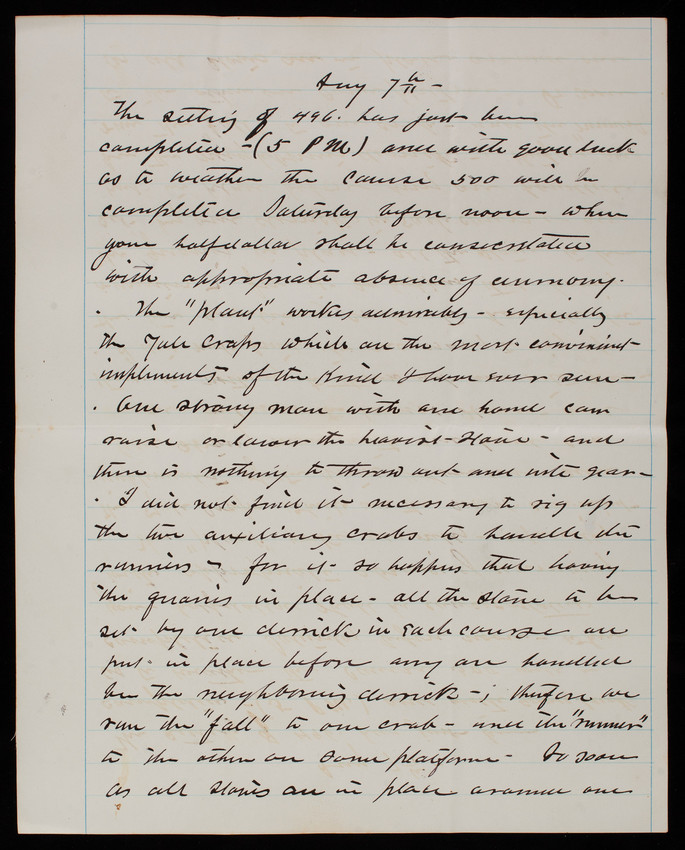 Aug 7th -
The setting of 496. has just been
completed - (5 P M) and with good luck
as to weather the course 500 will be
completed Saturday before noon - when
your half dollar shall be consecrated
with appropriate absence of ceremony.
. The "plant" works admirably - especially
the Yale Crabs which are the most convenient
implements of the kind I have ever seen -
. One strong man with one hand can
raise or lower the heaviest stone - and
there is nothing to throw out and into gear -
. I did not find it necessary to rig up
the two auxiliary crabs to handle the
runners - for it so happens that having
the guys in place - all the stone to be
set by one derrick in each course are
put in place before any are handled
by the neighboring derrick - ; therefore we
run the "fall" to one crab - and the "runner"
to the other on same platform - So soon
as all stones are in place around one